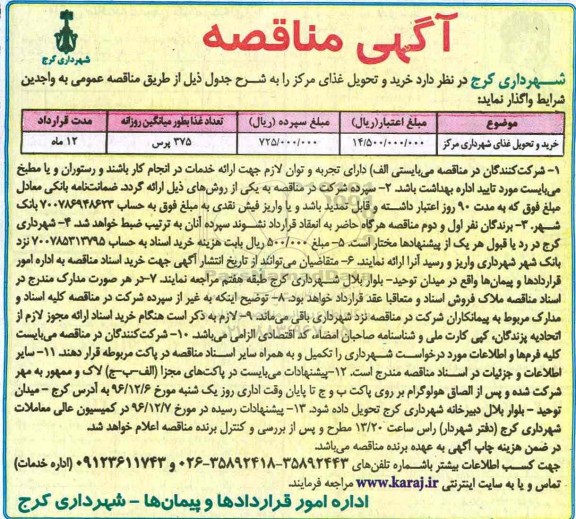 آگهی مناقصه
شهرداری کرج
شهرداری کرج در نظر دارد خرید و تحویل غذای مرکز را به شرح جدول ذیل از طریق مناقصه عمومی به واجدین
شرایط واگذار نماید:
موضوع مبلغ اعتبار(ریال) مبلغ سپرده (ریال) تعداد غذا بطور میانگین روزانه مدت قرارداد
خرید و تحویل غذای شهرداری مرکز ۱۴/۵۰۰/۰۰۰/۰۰۰ ۷۲۵/۰۰۰/۰۰۰ ۳۷۵ پرس ۱۲ ماه
۱- شرکت‌کنندگان در مناقصه می‌بایستی الف) دارای تجربه و توان لازم جهت ارائه خدمات در انجام کار باشند و رستوران و یا مطبخ
می‌بایست مورد تایید اداره بهداشت باشد. ۲- سپرده شرکت در مناقصه به یکی از روش‌های ذیل ارائه گردد. ضمانت‌نامه بانکی معادل
مبلغ فوق که به مدت ۹۰ روز اعتبار داشته و قابل تمدید باشد و یا واریز فیش نقدی به مبلغ فوق به حساب ۷۰۰۷۸۶۹۴۸۶۲۳ بانک
شهر. ۳- برندگان نفر اول و دوم مناقصه هرگاه حاضر به انعقاد قرارداد نشوند سپرده آنان به ترتیب ضبط خواهد شد. ۴- شهرداری
کرج در رد یا قبول هر یک از پیشنهادها مختار است. ۵- مبلغ ۵۰۰/۰۰۰ ریال بابت هزینه خرید اسناد به حساب ۷۰۰۷۸۵۳۱۳۷۹۵ نزد
بانک شهر شهرداری واریز و رسید آنرا ارائه نمایند. ۶- متقاضیان می‌توانند از تاریخ انتشار آگهی جهت خرید اسناد مناقصه به اداره امور
قراردادها و پیمان‌ها واقع در میدان توحید- بلوار بلال شهرداری کرج طبقه هفتم مراجعه نمایند. ۷-در هر صورت مدارک مندرج در
اسناد مناقصه ملاک فروش اسناد و متعاقبا عقد قرارداد خواهد بود. ۸- توضیح اینکه به غیر از سپرده شرکت در مناقصه کلیه اسناد و
مدارک مربوط به پیمانکاران شرکت در مناقصه نزد شهرداری باقی می‌ماند. ۹- لازم به ذکر است هنگام خرید اسناد ارائه مجوز لازم از
اتحادیه پزندگان، کپی کارت ملی و شناسنامه صاحبان امضاء، کد اقتصادی الزامی می‌باشد. ۱۰- شرکت‌کنندگان در مناقصه می‌بایست
کلیه فرم‌ها و اطلاعات مورد درخواست شهرداری را تکمیل و به همراه سایر اسناد مناقصه در پاکت مربوطه قرار دهند. ۱۱- سایر
اطلاعات و جزئیات در اسناد مناقصه مندرج است. ۱۲-پیشنهادات می‌بایست در پاکت‌های مجزا (الف-ب-ج) لاک و ممهور به مهر
شرکت شده و پس از الصاق هولوگرام بر روی پاکت ب و ج تا پایان وقت اداری روز یک شنبه مورخ ۹۶/۱۲/۶ به آدرس کرج - میدان
توحید - بلوار بلال دبیرخانه شهرداری کرج تحویل داده شود. ۱۳- پیشنهادات رسیده در مورخ ۹۶/۱۲/۷ در کمیسیون عالی معاملات
شهرداری کرج (دفتر شهردار) راس ساعت ۱۳/۲۰ مطرح و پس از بررسی و کنترل برنده مناقصه اعلام خواهد شد.
در ضمن هزینه چاپ آگهی به عهده برنده مناقصه می‌باشد.
جهت کسب اطلاعات بیشتر با شماره تلفن‌های ۳۵۸۹۲۴۴۳-۳۵۸۹۲۴۱۸-۰۲۶ و ۰۹۱۲۳۶۱۱۷۴۳ (اداره خدمات)
تماس و یا به سایت اینترنتی www.karaj.ir مراجعه فرمایند.
اداره امور قراردادها و پیمان‌ها - شهرداری کرج